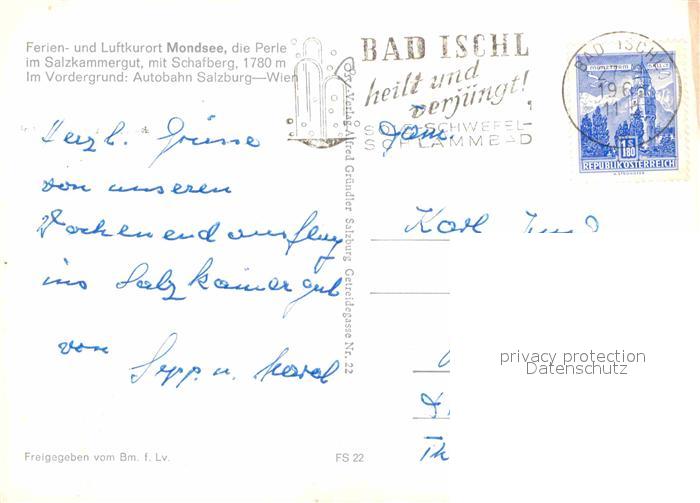 Ferien- und Luftkurort Mondsee, die Perle
im Salzkammergut, mit Schafberg, 1780 m
Im Vordergrund: Autobahn Salzburg—Wien
BAD ISCHL
heilt und
verjüngt!
SOLE-SCHWEFEL-
SCHLAMMBAD
BAD ISCHL
196
11
münzturm
REPUBLIK ÖSTERREICH
Herzl. Grüsse
von unseren
Wochenendausflug
ins Salzkamergut
von
Sepp u.
Verlag Alfred Gründler Salzburg Getreidegasse Nr. 22
Fam.
Karl
privacy protection
Datenschutz
Th
Freigegeben vom Bm. f. Lv.
FS 22